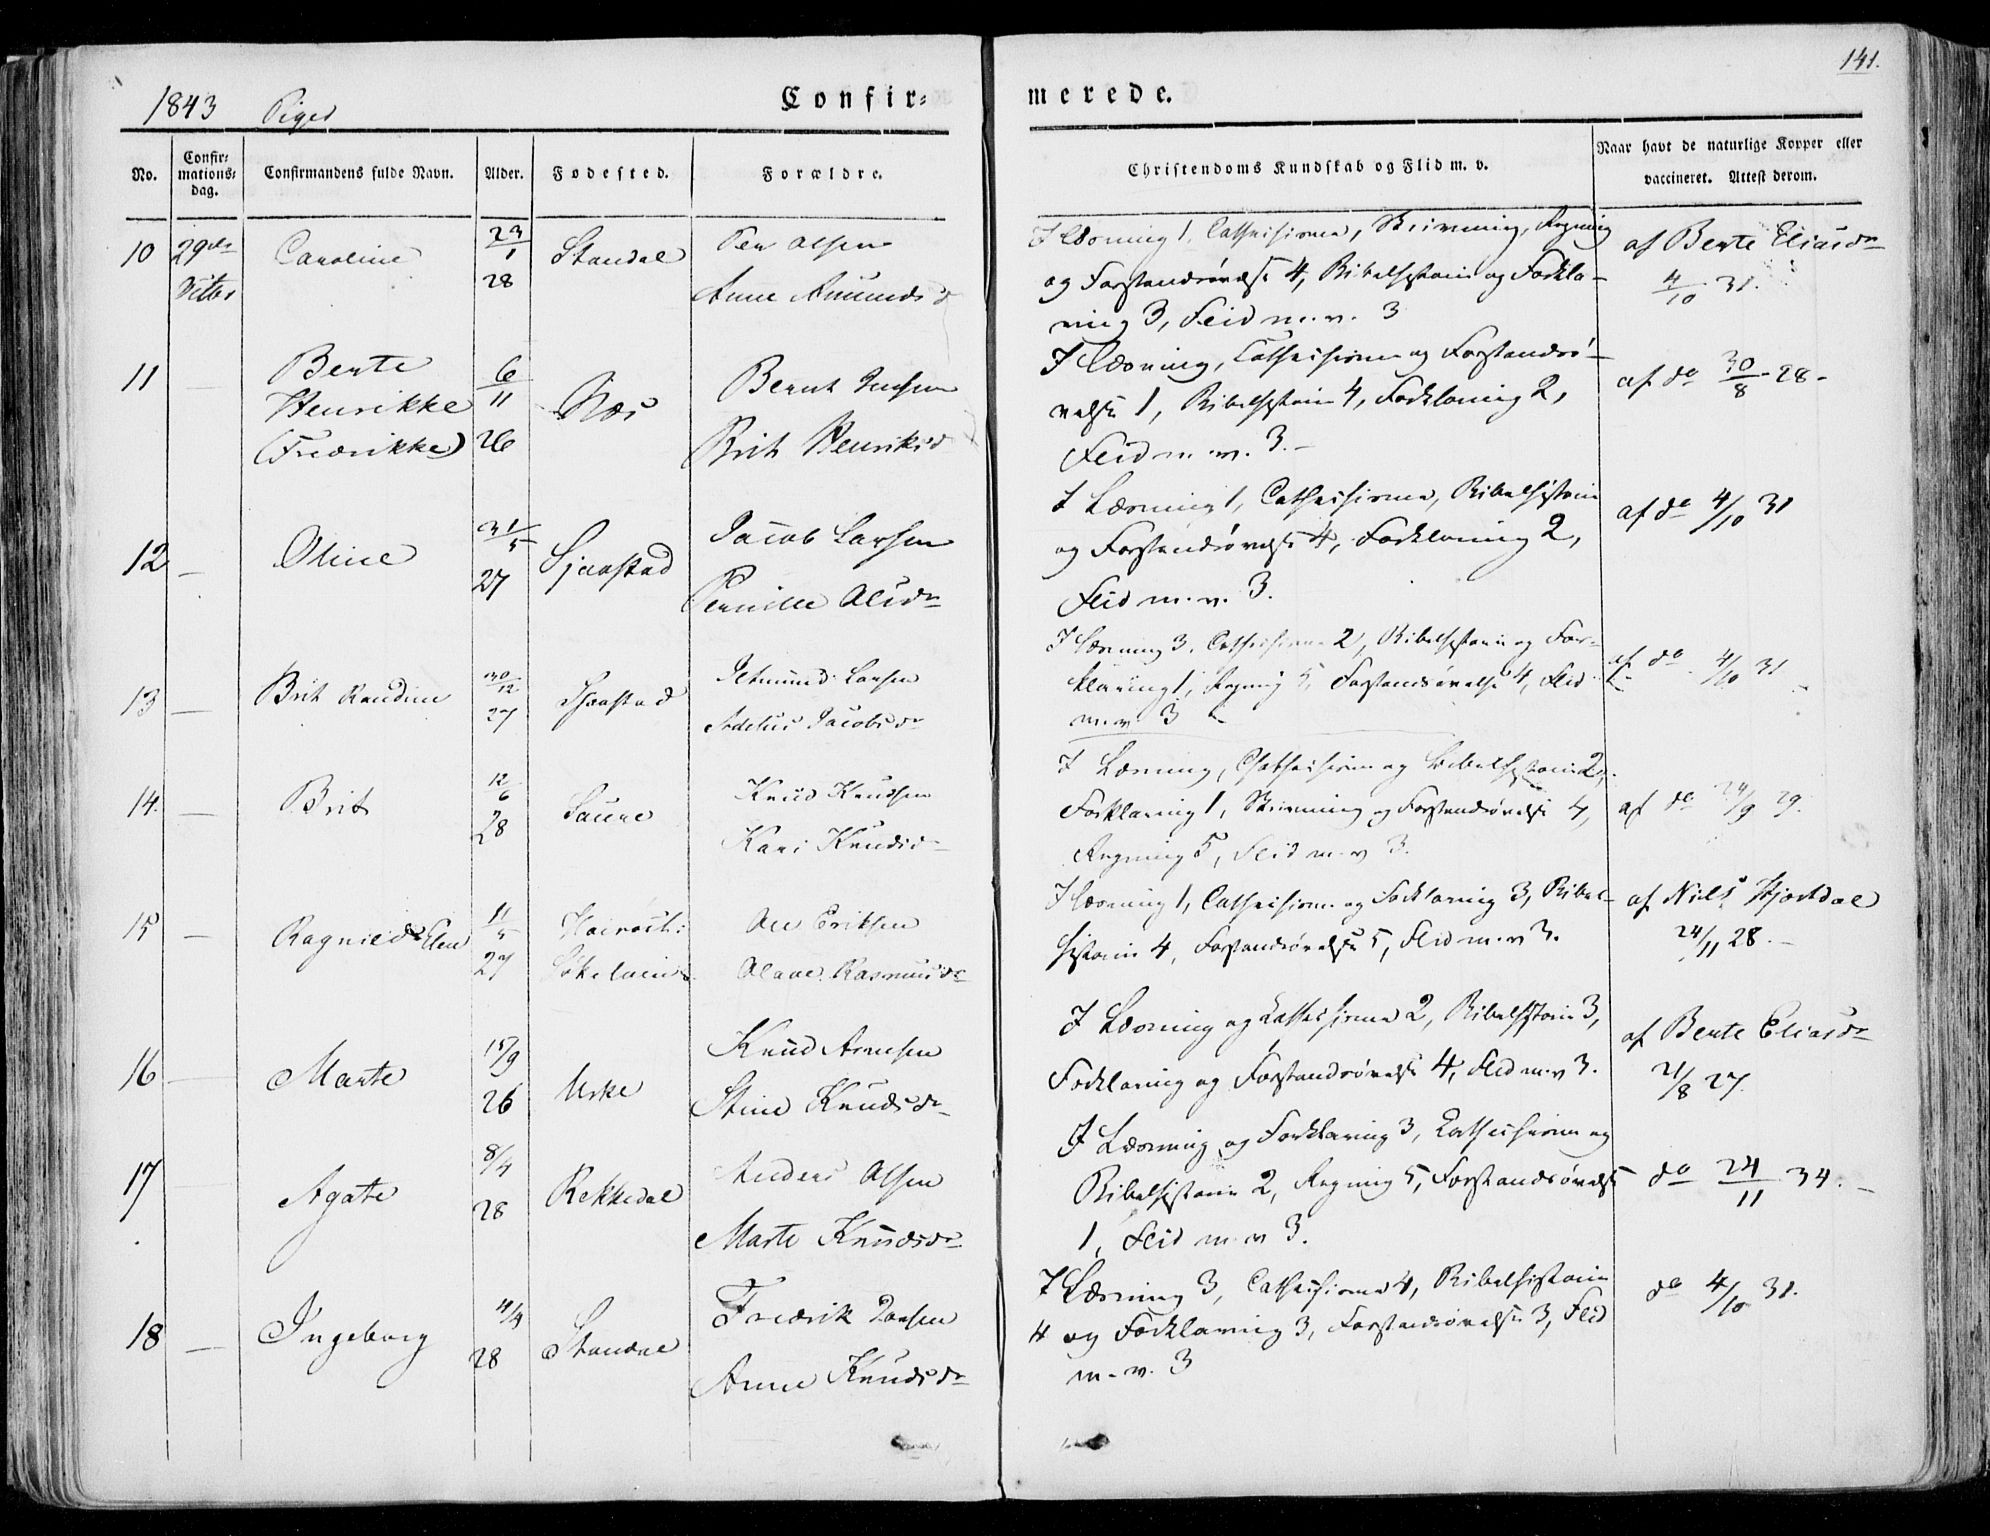 141.
1843 Piger
Confir-
merede.
No.
Confir-
mations-
dag.
Confirmandens fulde Navn.
Alder.
Fødested.
Forældre.
Christendoms Kundskab og Flid m. v.
Naar havt de naturlige Kopper eller
vaccineret. Attest derom.
10 29de Caroline 23/1 28 Standal
Octbr
Peer Olsen
Anne Amundsd
I Læsning 1, Cathechisme, Skrivning, Regning
og Forstandsøvelse 4, Bibelhistorie og Forkla-
ring 3, Flid m. v. 3
af Berte Eliasdr
4/10 31.
11 — Berte
Henrikke
(Fredrikke)
6/11 26
Næs
Bernt
Brit Henriksd
I Læsning, Cathechisme og Forstandsø-
velse 1, Bibelhistorie 4, Forklaring 2,
Flid m. v. 3. –
af do 30/8 28 –
12 — Oline 31/5 27 Sjaastad
Jacob Larsen
Pernille Olsdr
I Læsning 1, Cathechisme, Bibelhistorie
og Forstandsøvelse 4, Forklaring 2,
Flid m. v. 3.
af do 4/10 31
13 — Brit Randine 30/12 27 Sjaastad
Larsen
Jacobsdr
I Læsning 3, Cathechisme 2, Bibelhistorie og For-
klaring 1, Regning 5, Forstandsøvelse 4, Flid
m. v. 3
af do 4/10 31
14. — Brit 12/6 28 Saure
Knud Knudsen
Kari Knudsd
I Læsning, Chathechisme og Bibelhistorie 2,
Forklaring 1, Skrivning og Forstandsøvelse 4,
Regning 5, Flid m. v 3.
af do 24/9 29.
15 — Ragnild Elen 11/5 27
Ole Eriksen
Olave Rasmusdr
I Læsning 1, Cathechisme og Forklaring 3, Bibel-
historie 4, Forstandsøvelse 5, Flid m. v 3.
af Niels Hjortdal
24/11 28. –
16 — Marte 15/9 26 Urke
Knud Arnesen
Stine Knudsdr
I Læsning og Cathechisme 2, Bibelhistorie 3,
Forklaring og Forstandsøvelse 4, Flid m. v 3.
af Berte Eliasdr
21/8 27.
17 Agate 8/4 28 Rekkedal
Anders Olsen
Marte Knudsdr
I Læsning og Forklaring 3, Cathechisme og
Bibelhistorie 2, Regning 5, Forstandsøvelse
1, Flid m. v 3.
do 24/11 34. –
18 — Ingeborg 4/4 28 Standal
Fredrik
Anne Knudsdr
I Læsning 3, Cathechisme 4, Bibelhistorie
4 og Forklaring 3, Forstandsøvelse 3, Flid
m. v. 3
do 4/10 31.